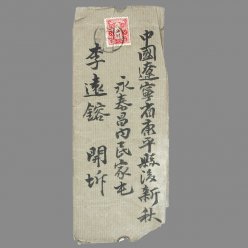 中國遼寧省康平縣後新秋
永泰昌內民家屯
李遠鎔 開拆